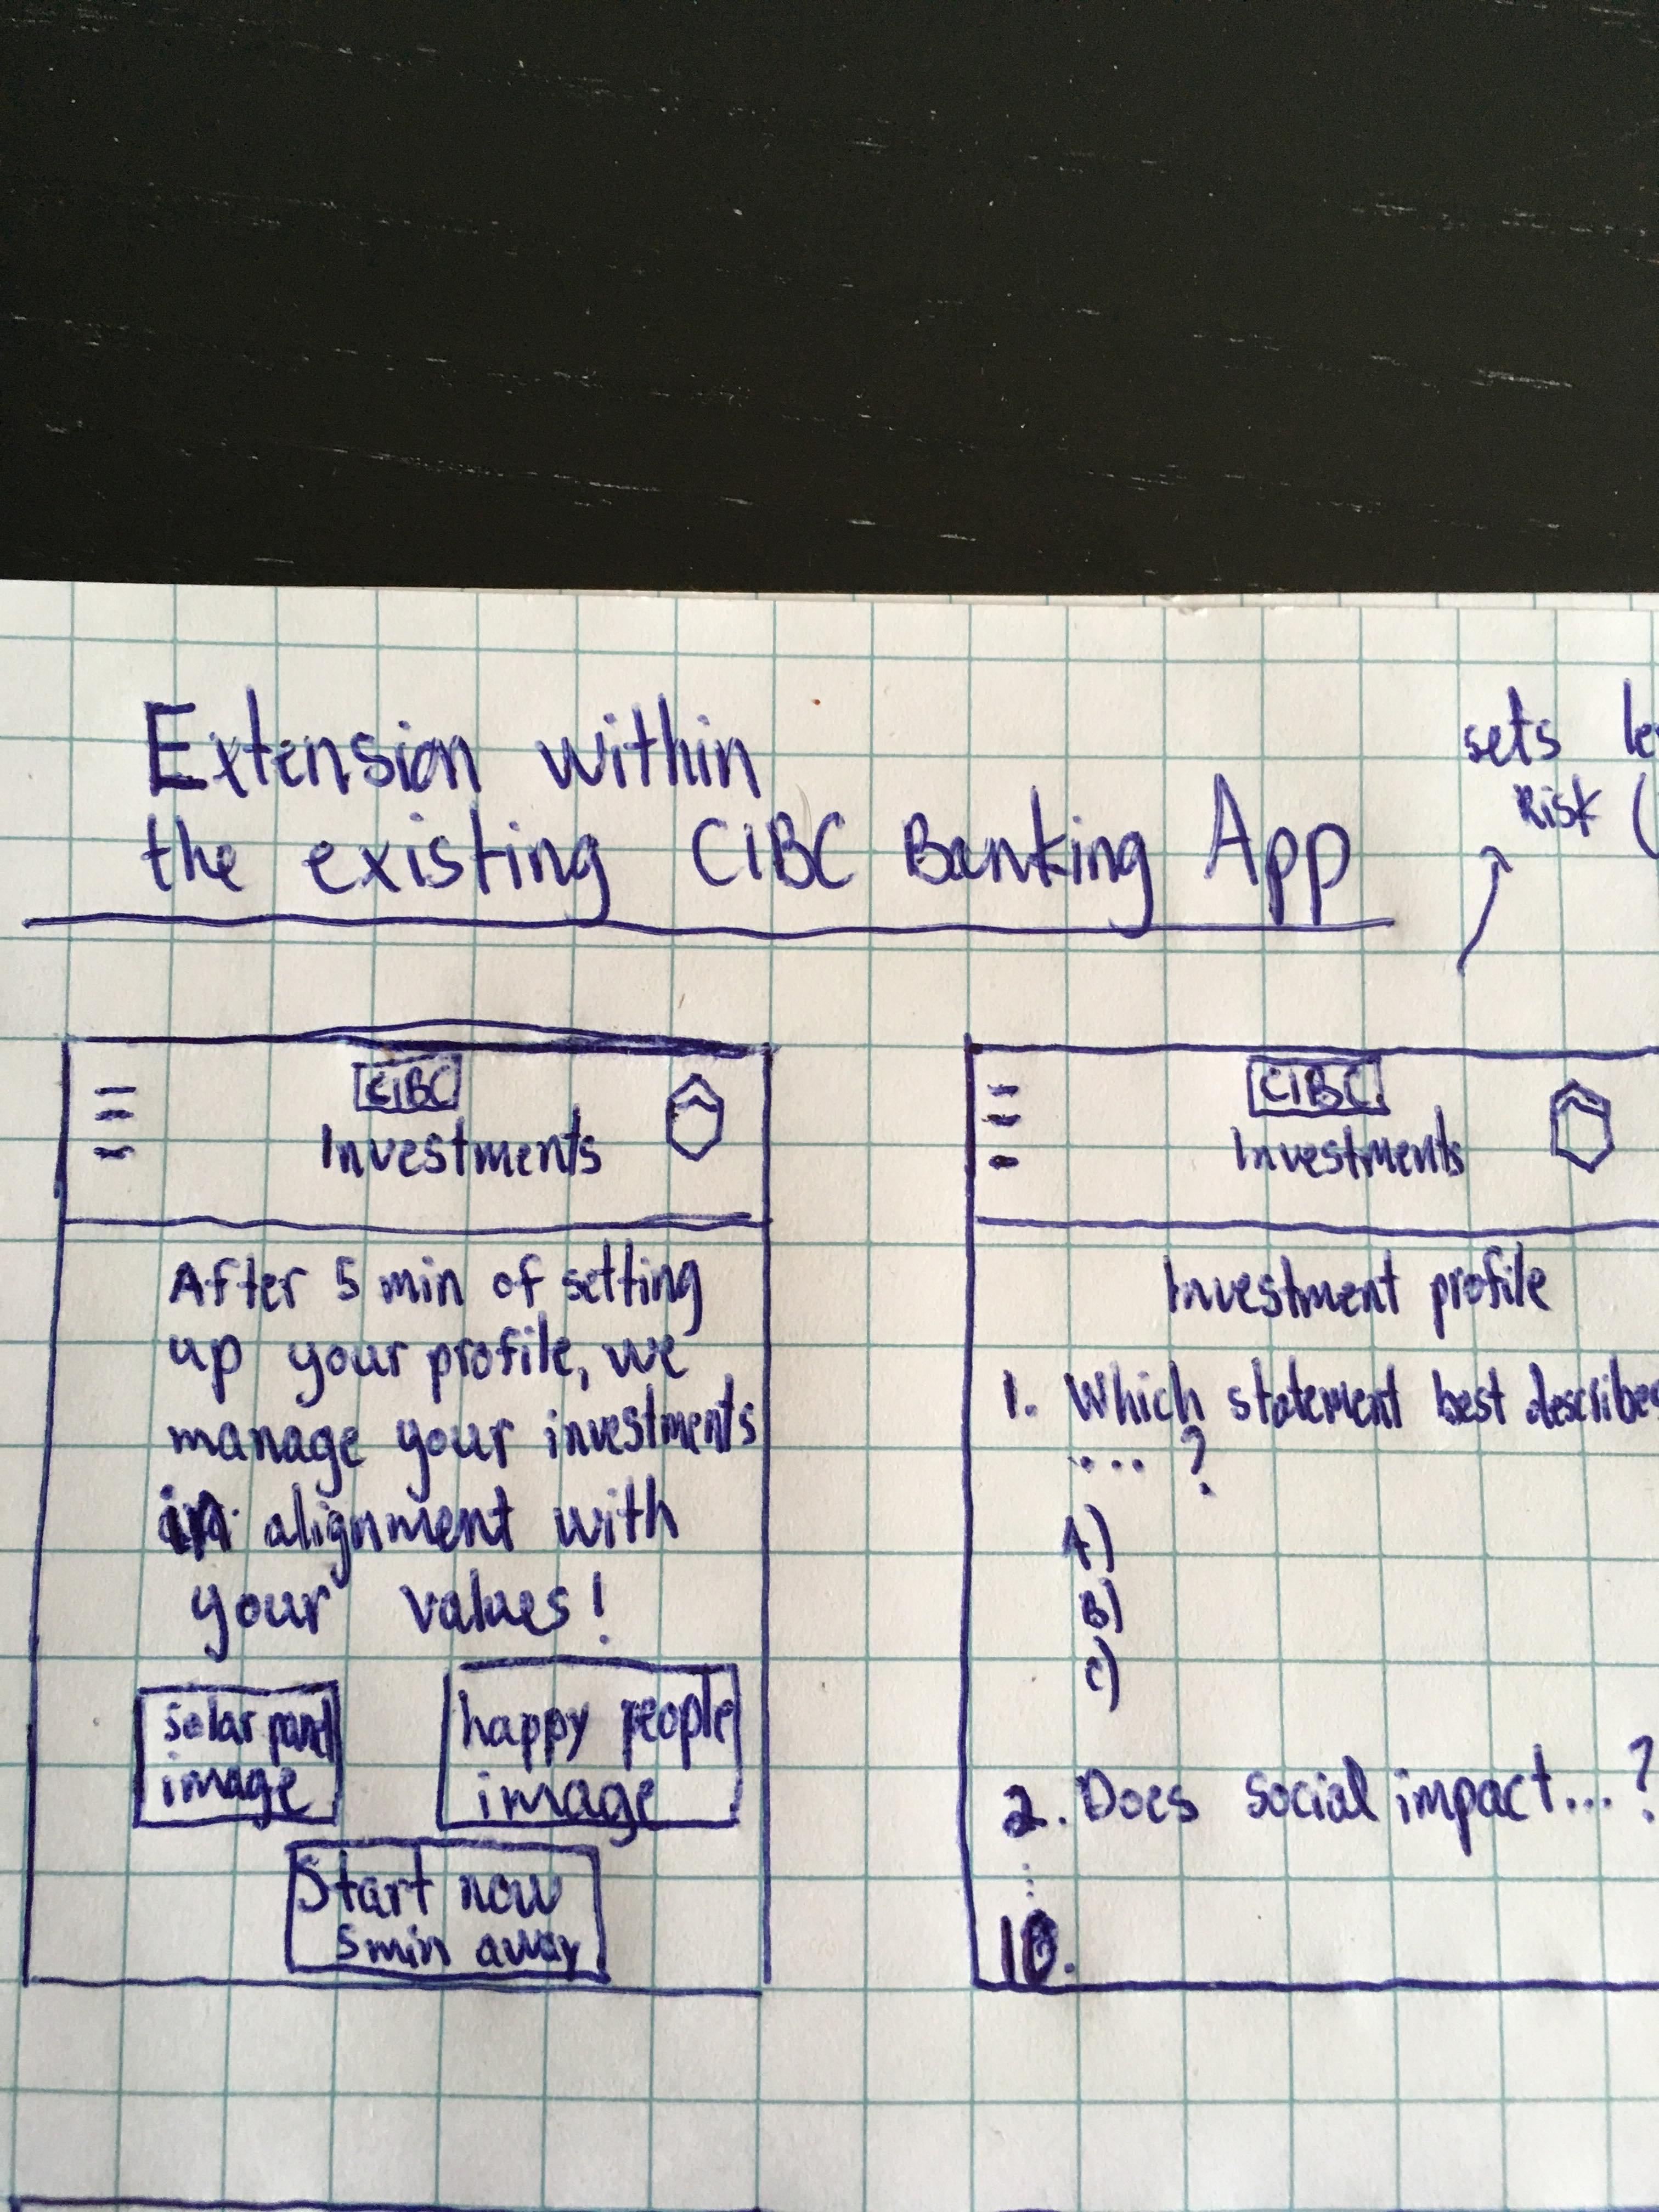 Extension within
the existing CIBC Banking App
sets
Risk (
CIBC
Investments
After 5 min of setting
up your profile, we
manage your investments
in alignment with
your values!
solar panel
image
happy people
image
Start now
5min away
CIBC
Investments
Investment profile
1. Which statement best describes
... ?
A)
B)
C)
2. Does social impact...?
10.